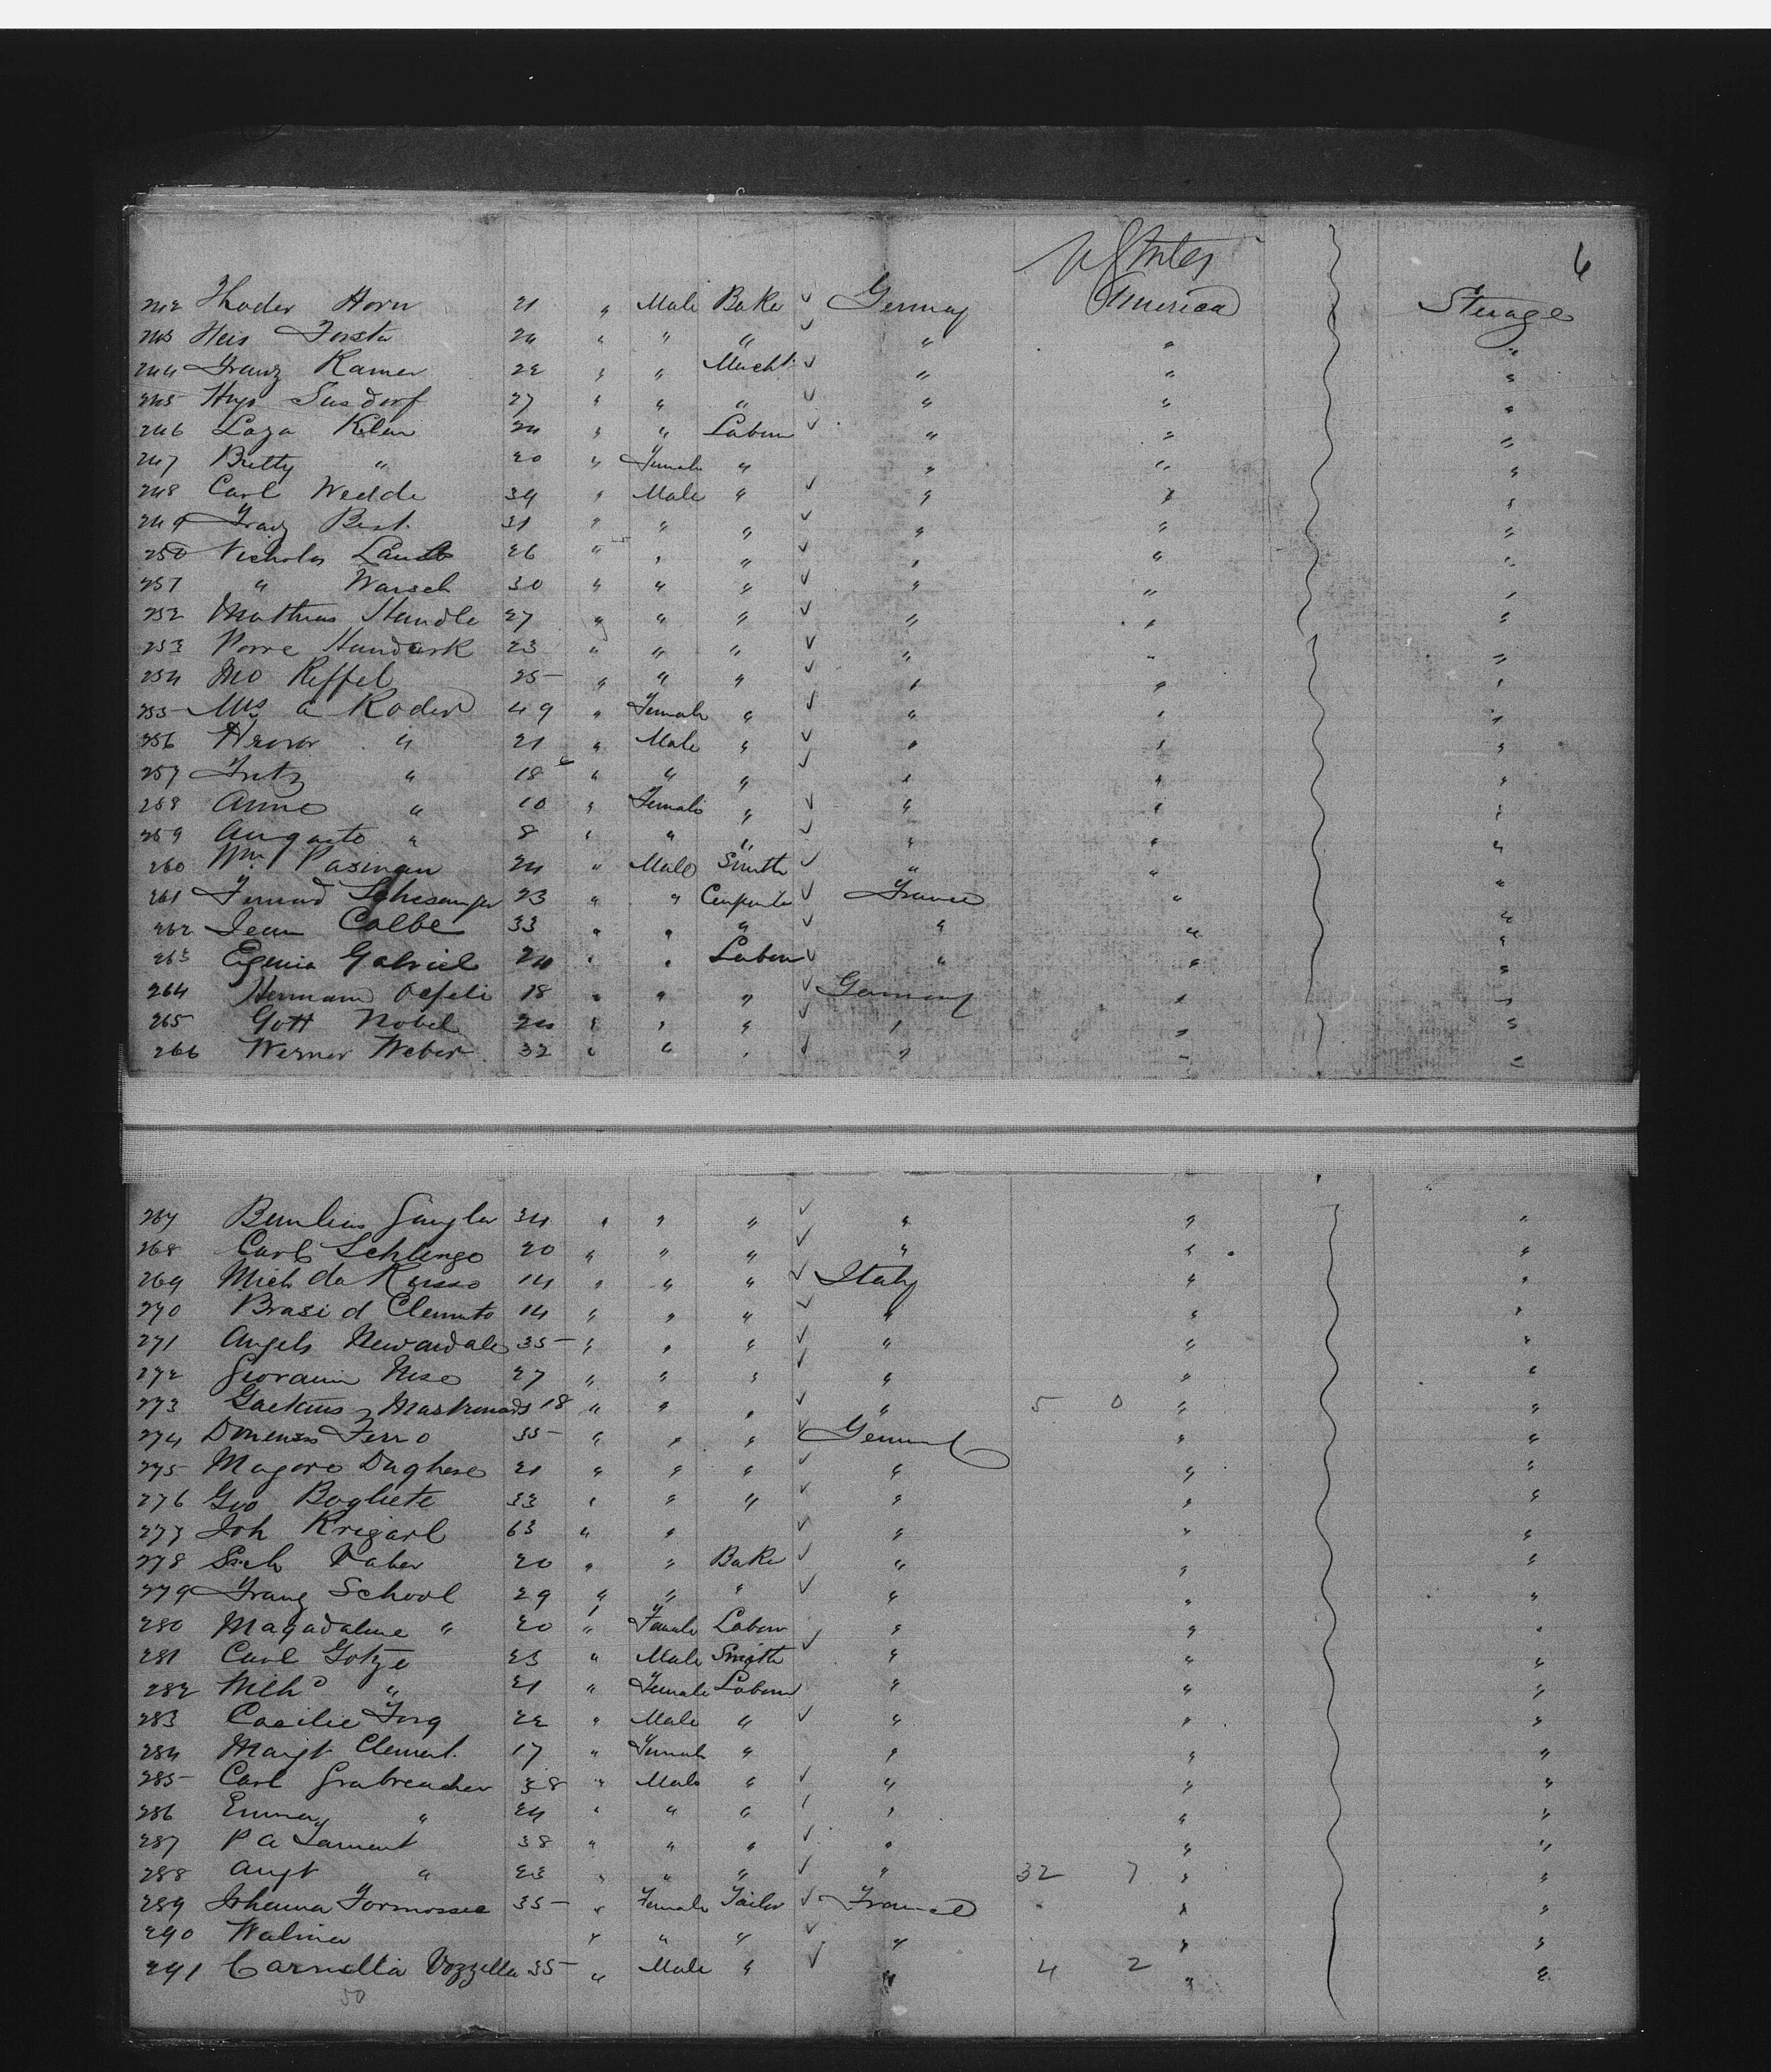 6
U States
242 Thoder Horn 21 " Male Baker ✓ Germany America Sterage
243 Heis Forsta 24 " " " ✓ " " "
244 Franz Ramer 22 " " Mecht ✓ " " "
245 Hugo Susdorf 27 " " " ✓ " " "
246 Laza Klein 24 " " Labour ✓ " " "
247 Betty " 20 " Female " " " "
248 Carl Wedde 34 " Male " ✓ " " "
249 Franz Best 31 " " " ✓ " " "
250 Nicholas Laub 26 " " " ✓ " " "
251 " Warsch 30 " " " ✓ " " "
252 Mathias Staudle 27 " " " ✓ " " "
253 Porre Hundark 23 " " " ✓ " " "
254 Mo Reffel 25 " " " ✓ " " "
255 Mrs A Roder 49 " Female " ✓ " " "
256 " 21 " Male " ✓ " " "
257 Fritz " 18 " " " ✓ " " "
258 Anna " 10 " Female " ✓ " " "
259 Augusto " 8 " " " ✓ " " "
260 Wm Pasman 24 " Male Smith ✓ " " "
261 Fernand 23 " " Carpenter ✓ France " "
262 Jean Colbe 33 " " " ✓ " " "
263 Egenia Gabriel 24 " " Labour ✓ " " "
264 Hermann Oefeli 18 " " " ✓ Germany " "
265 Gott Nobel 24 " " " ✓ " " "
266 Werner Weber 32 " " " ✓ " " "
267 Gangler 34 " " " ✓ " " "
268 Carl Schlengo 20 " " " ✓ " " "
269 Mich da Russo 14 " " " ✓ Italy " "
270 Brasi d Clemento 14 " " " ✓ " " "
271 Angelo 35 " " " ✓ " " "
272 Giovanni Neso 27 " " " ✓ " " "
273 Gaetano 18 " " " ✓ " 5 0 " "
274 Ferro 35 " " " ✓ " "
275 Magoro Daghese 21 " " " ✓ " " "
276 Gio Bogliete 33 " " " ✓ " " "
277 Joh Krigarl 63 " " ✓ " " "
278 Faber 20 " " Baker ✓ " " "
279 Franz School 29 " " " ✓ " " "
280 Magadaline " 20 " Female Labour " " "
281 Carl Gotze 23 " Male Smith ✓ " " "
282 Wilh " 21 " Female Labour " " "
283 Caecilie Jorg 22 " Male " ✓ " " "
284 Margt Clement 17 " Female " " " "
285 Carl Grabreacher 38 " Male " ✓ " " "
286 Emma " 24 " " " " " "
287 P A Lament 38 " " " ✓ " " "
288 Augt " 23 " " " ✓ " 32 7 " "
289 Johanna Formossee 35 " Female Tailor ✓ France " "
290 Walina " " " ✓ " " "
291 Carmella Vozzella 35 " Male " ✓ " 4 2 " "
50